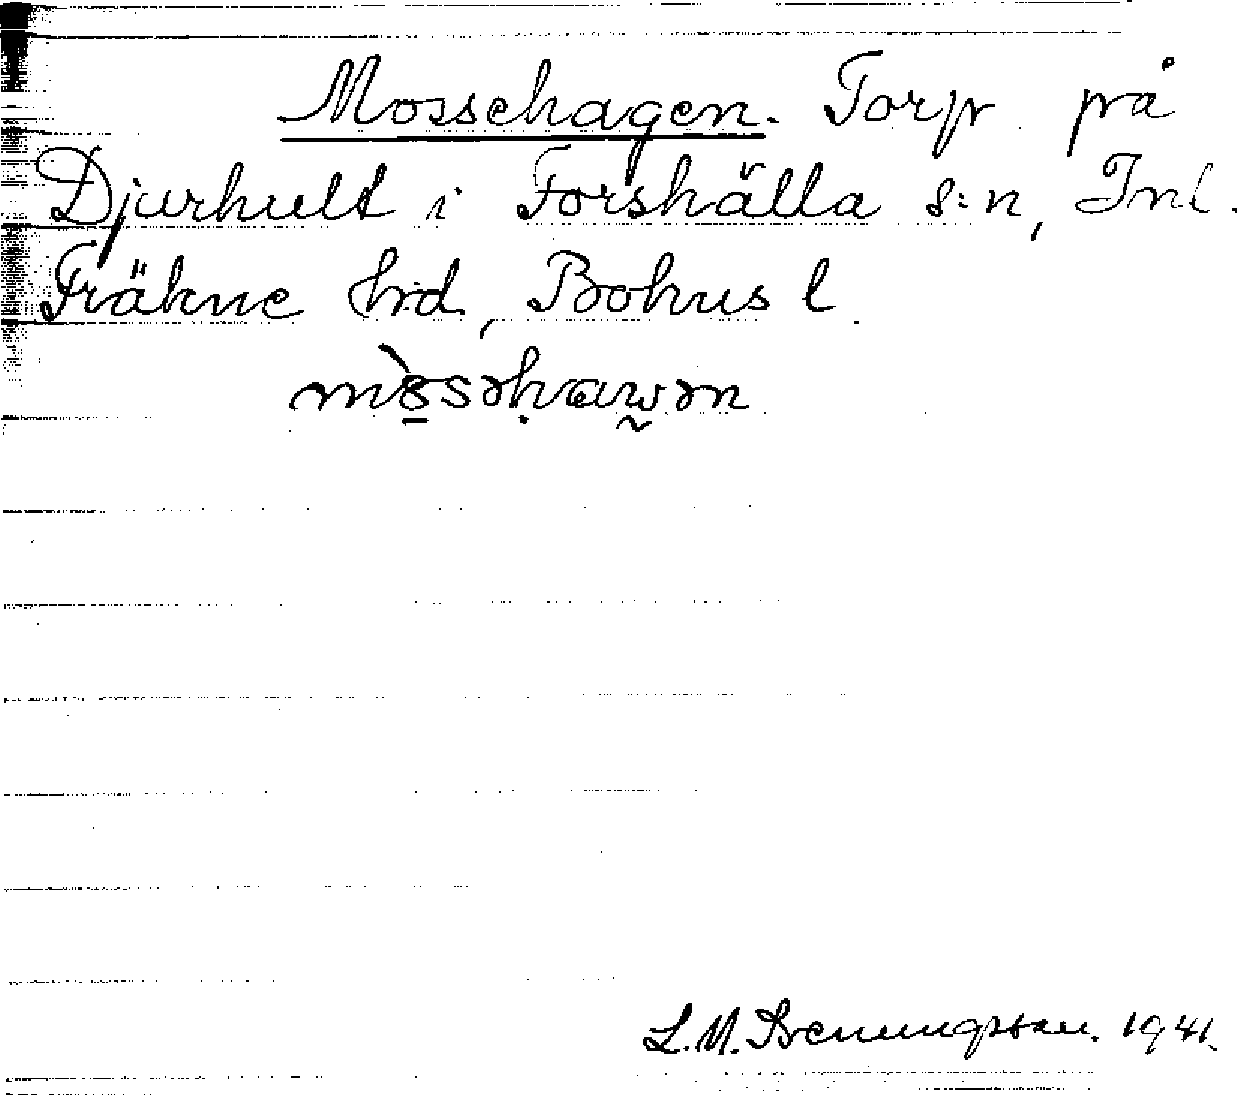 Mossehagen. Torp på
Djurhult i Forshälla s:n, Inl.
Fräkne hrd, Bohus l.
L. M. Svenungsson. 1941.